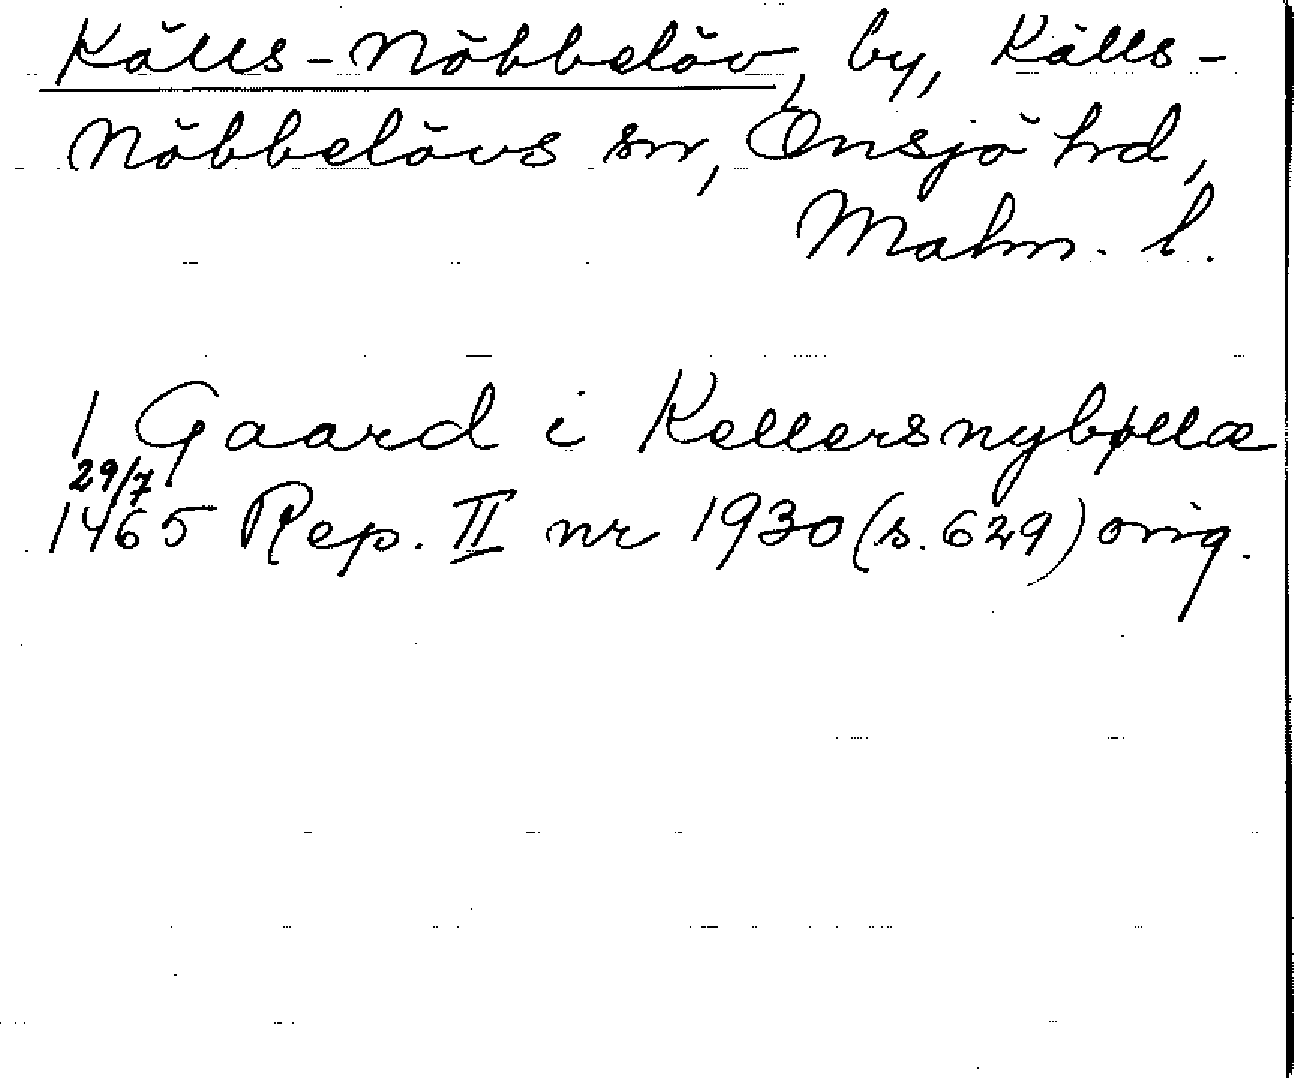 Källs-Nöbbelöv, by, Källs-
Nöbbelövs sn, Onsjö hd,
Malm. l.
1 Gaard i Kellersnybøllæ
29/7
1465 Rep. II nr 1930 (s. 629) orig.